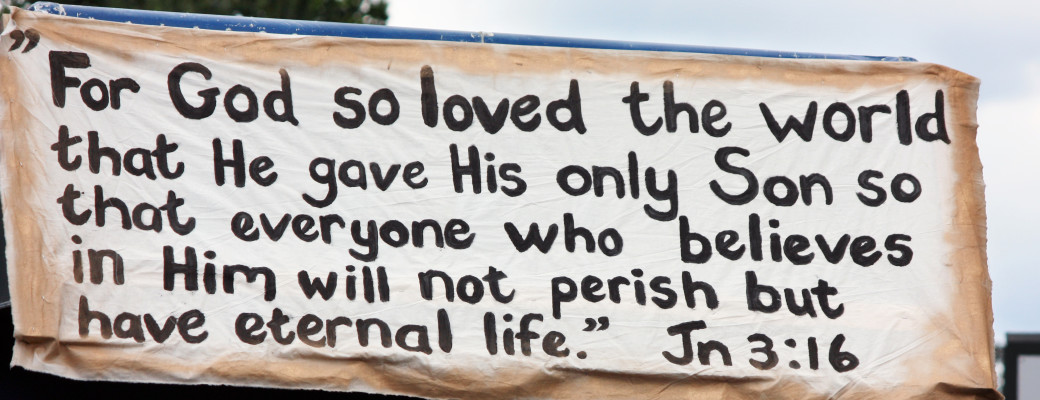 ”For God so loved the world
that He gave His only Son so
that everyone who believes
in Him will not perish but
have eternal life.” Jn 3:16